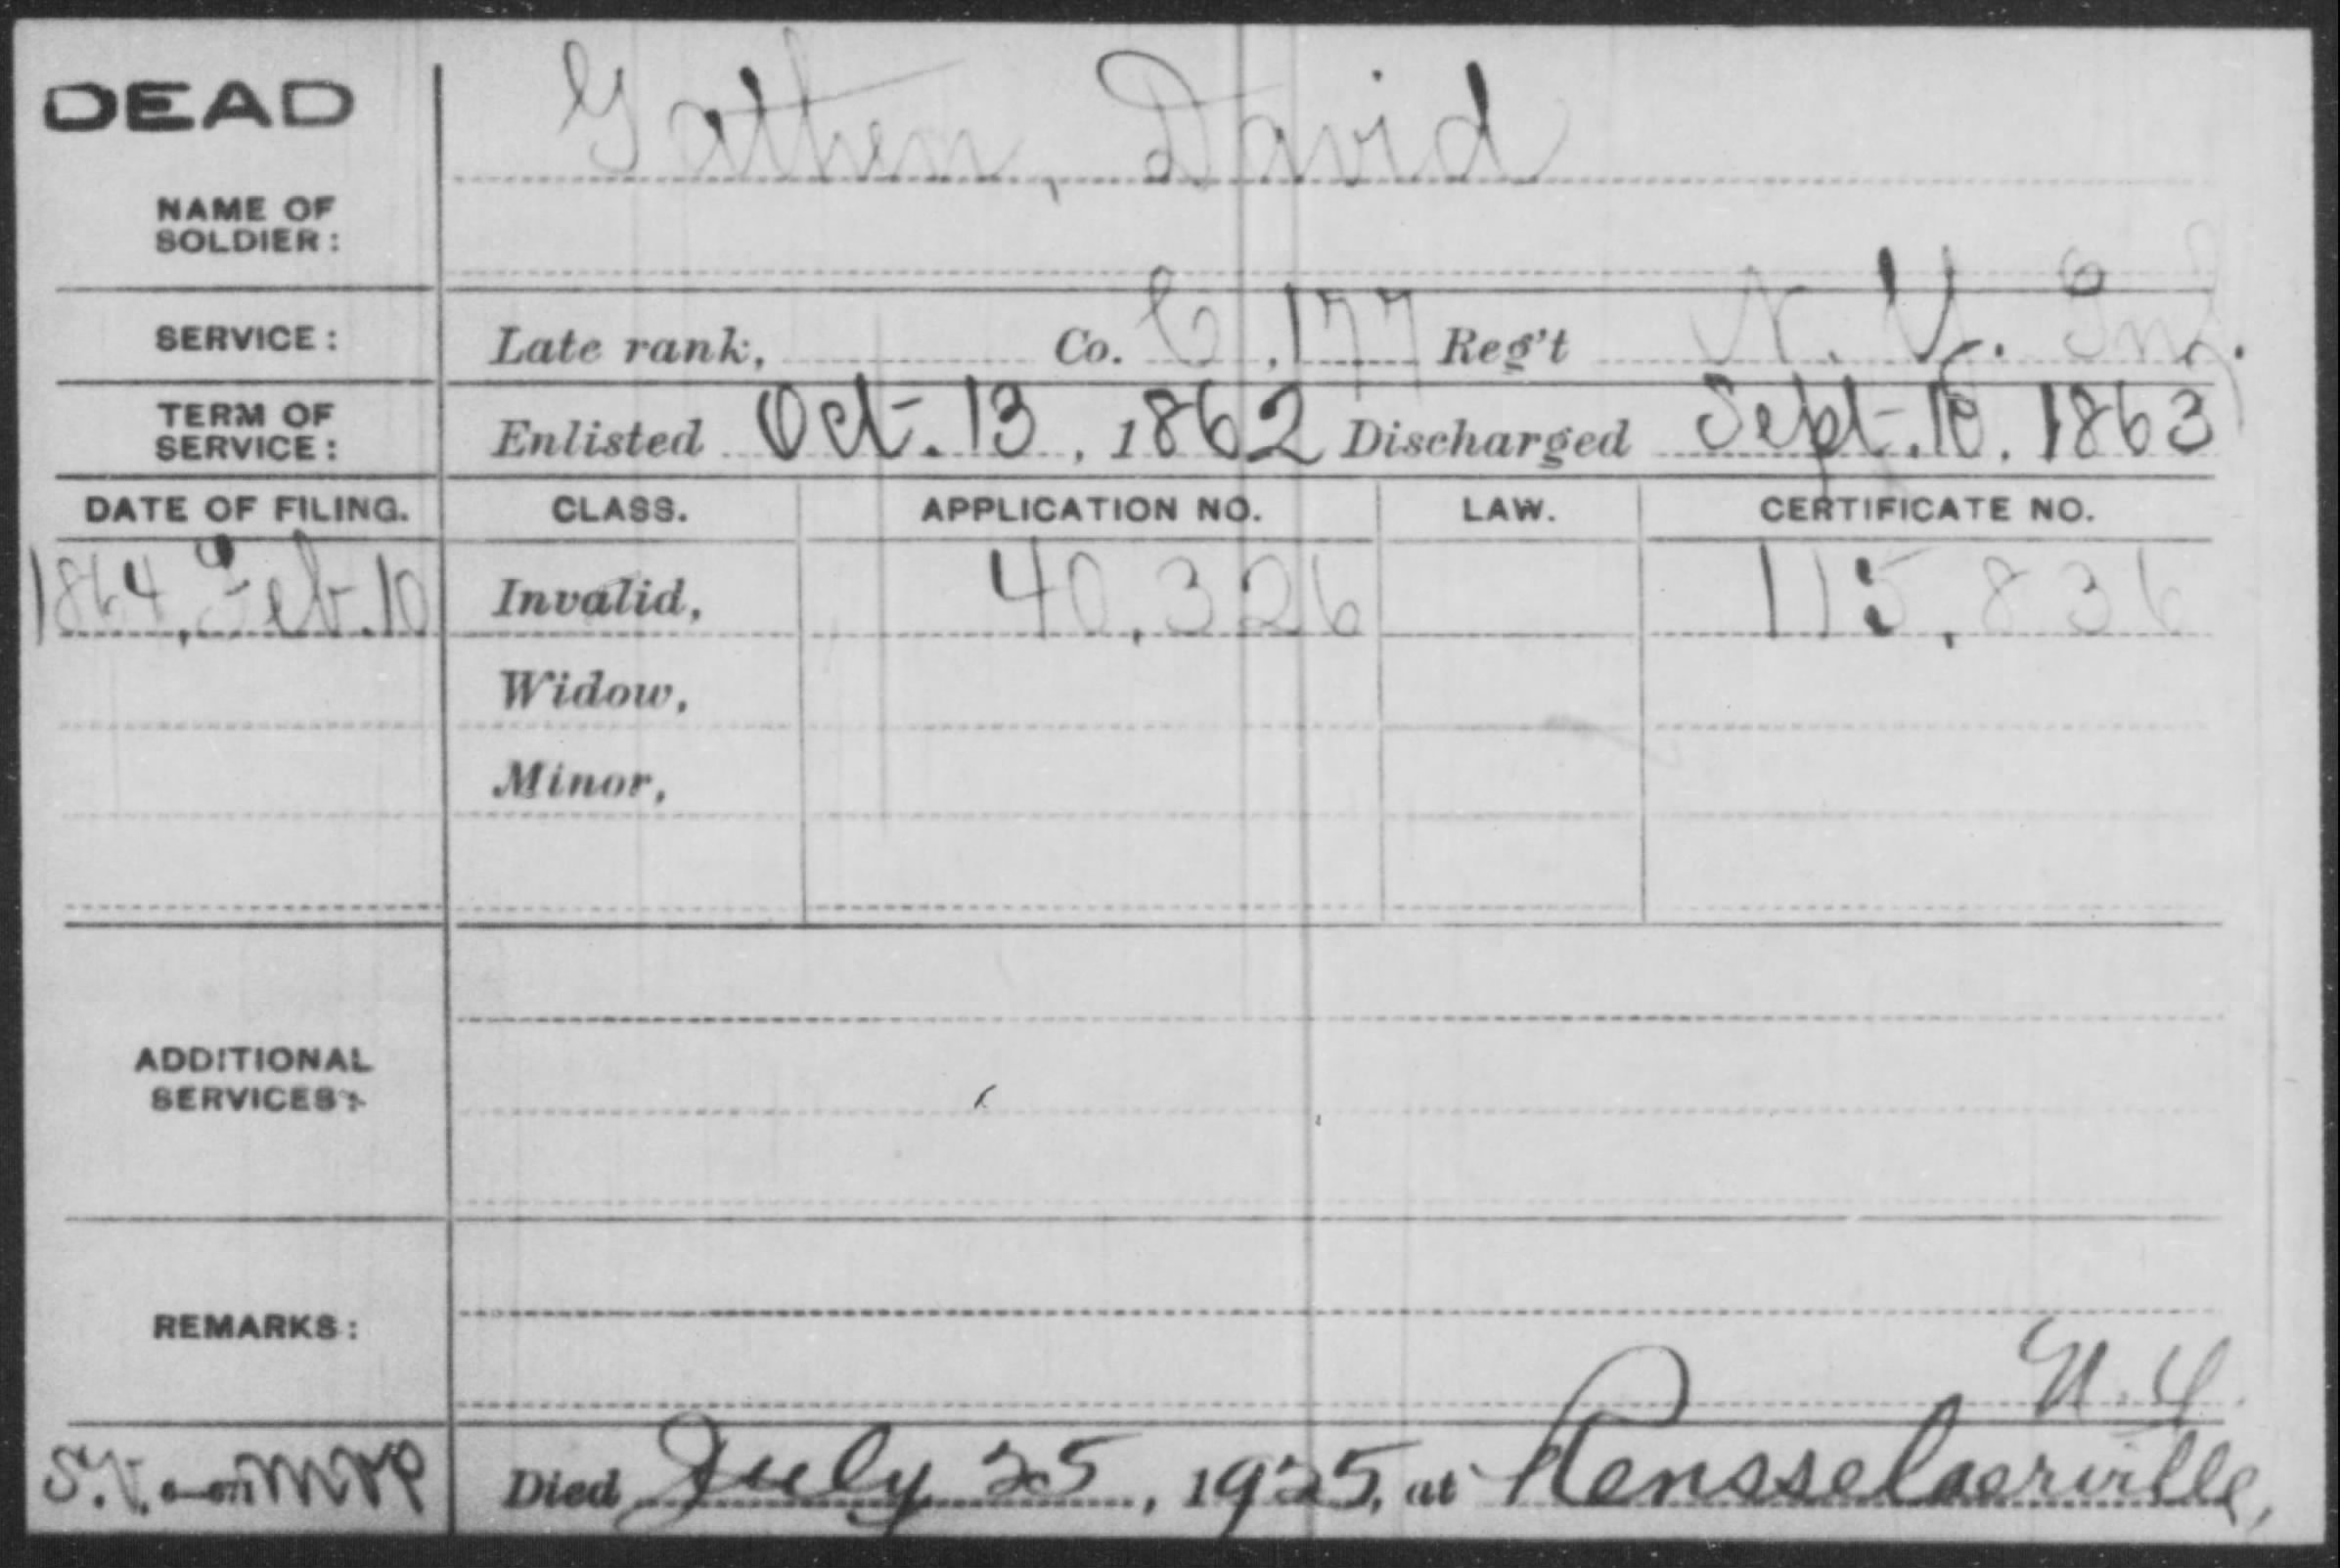 DEAD
Gathen, David
NAME OF
SOLDIER:
SERVICE: Late rank, Co. C, 177 Reg't N. Y. Inf.
TERM OF
SERVICE: Enlisted Oct. 13, 1862 Discharged Sept. 10, 1863
DATE OF FILING. CLASS. APPLICATION NO. LAW. CERTIFICATE NO.
1864, Feb. 10 Invalid, 40,326 115,836
Widow,
Minor,
ADDITIONAL
SERVICES:
REMARKS:
N.Y.
Died July 25, 1925, at Rensselaerville,